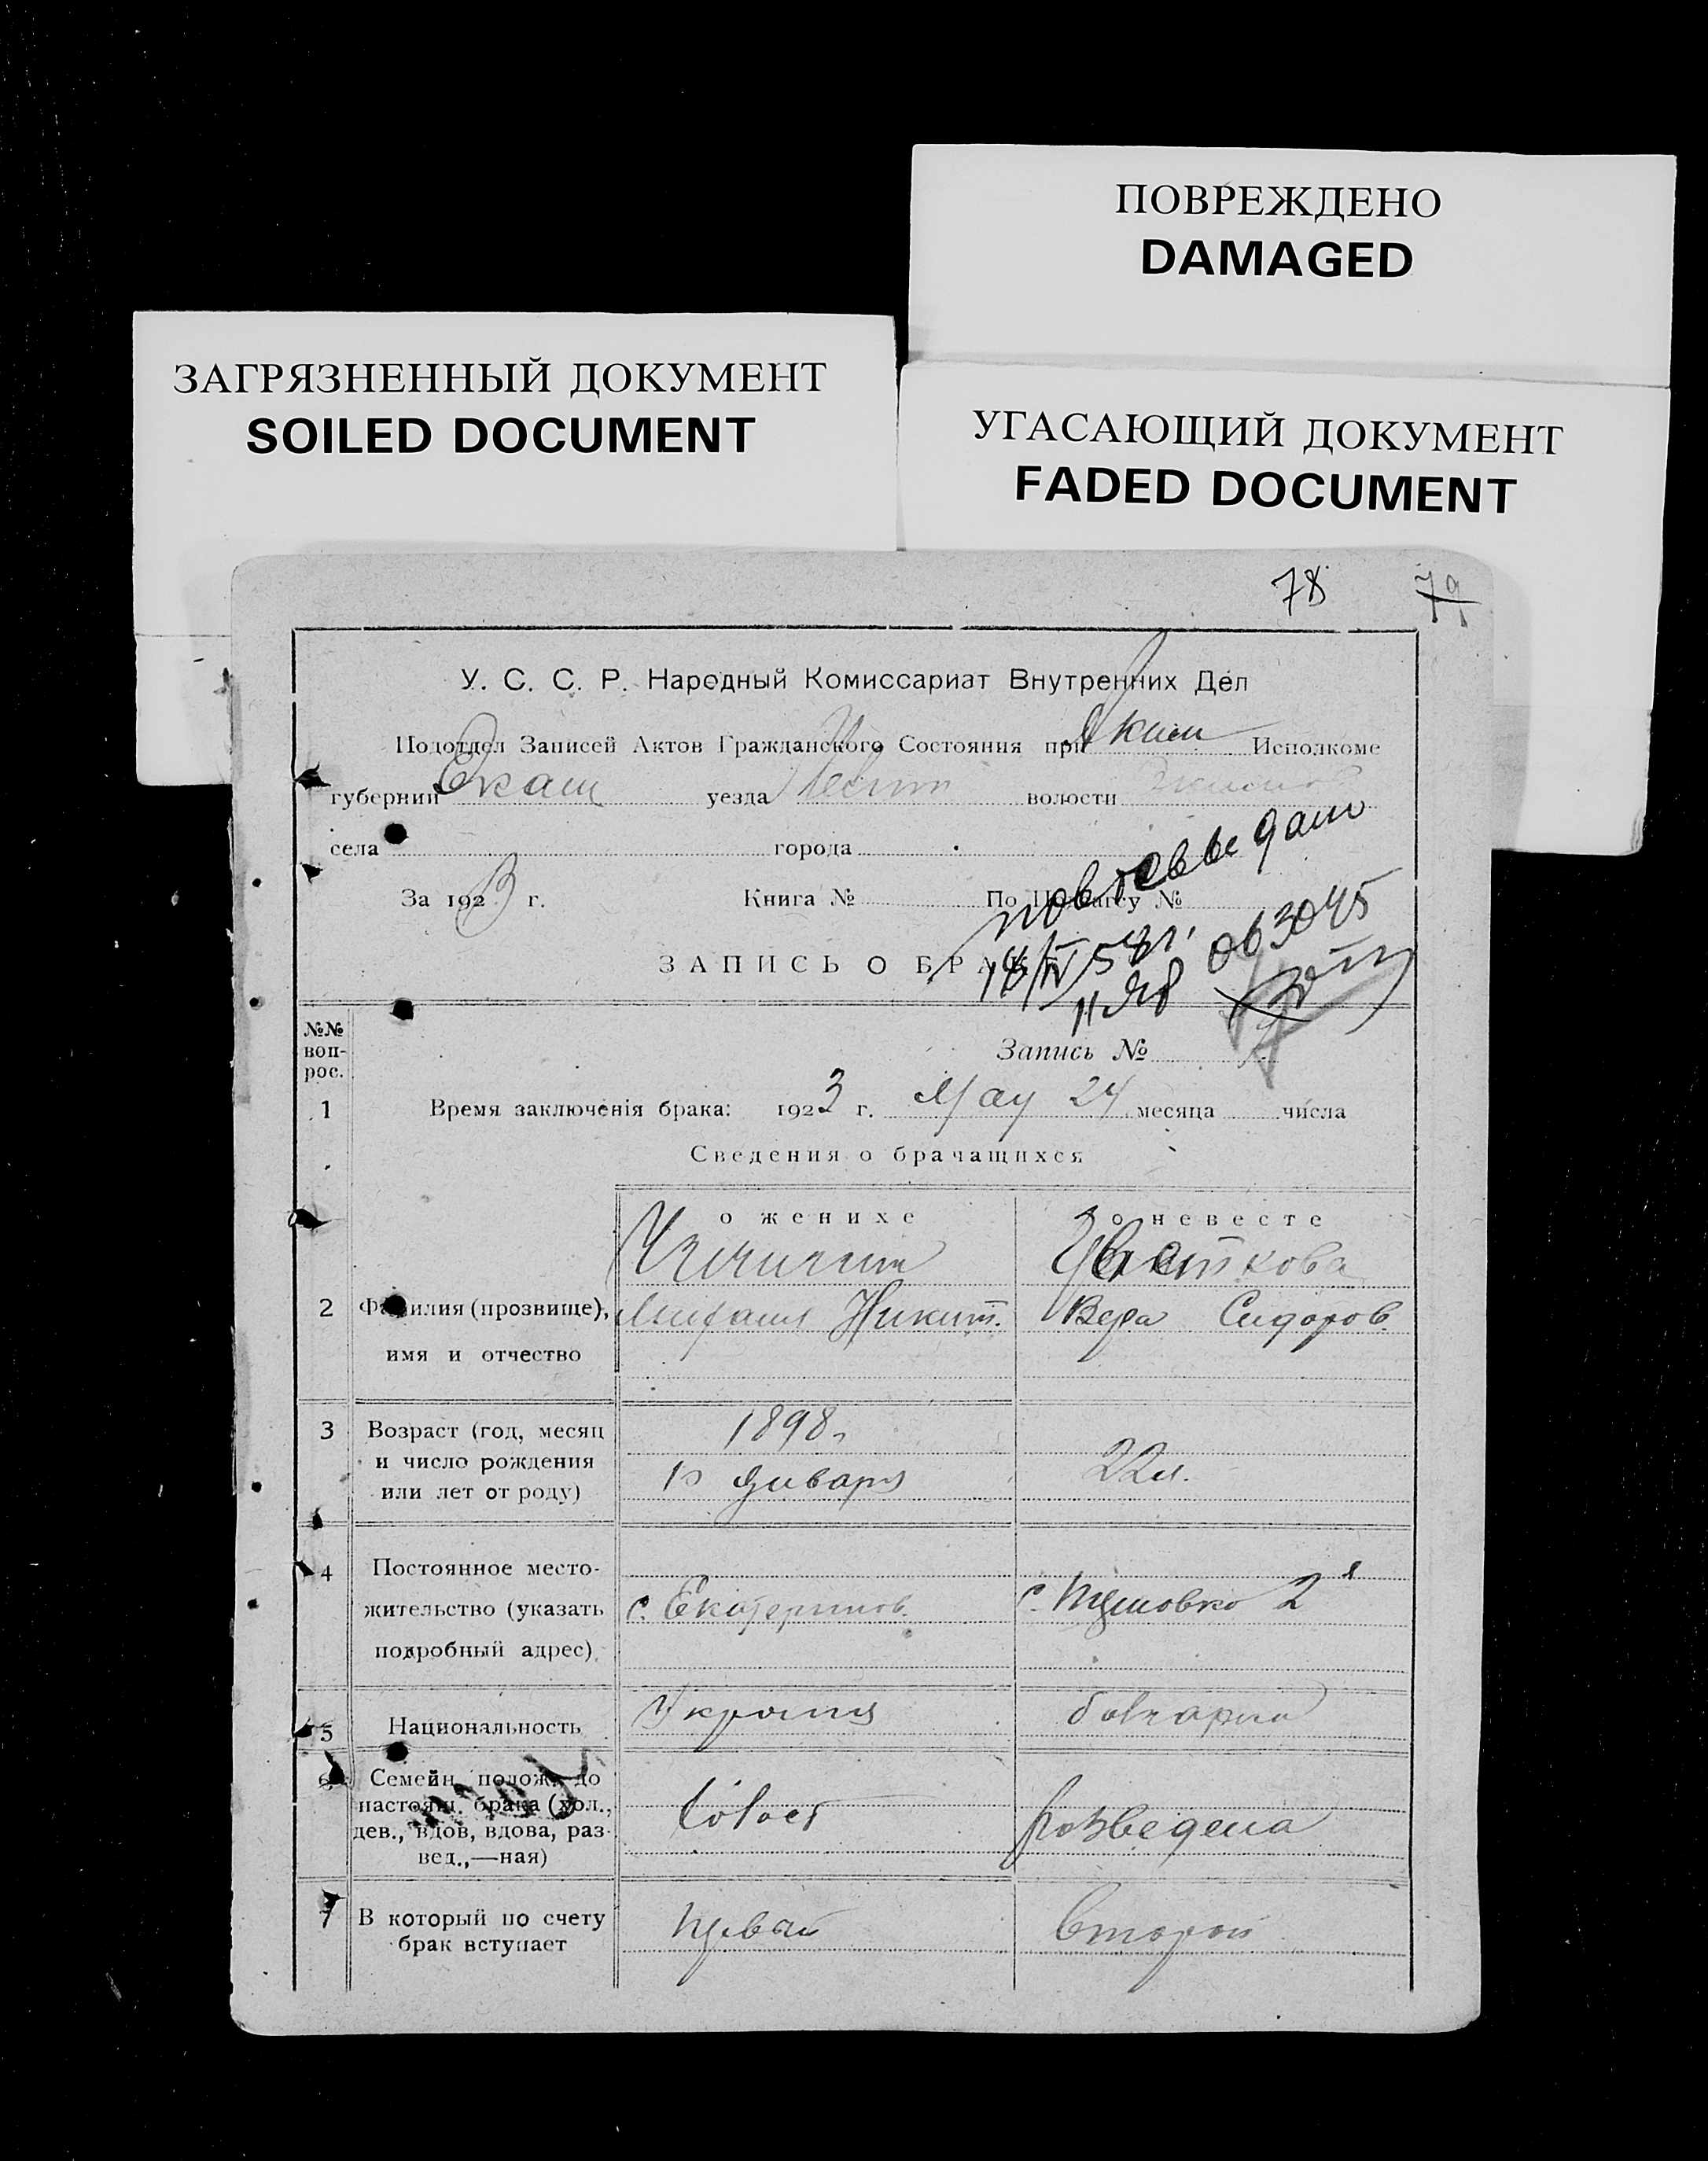 ПОВРЕЖДЕНО
DAMAGED
ЗАГРЯЗНЕННЫЙ ДОКУМЕНТ
SOILED DOCUMENT
УГАСАЮЩИЙ ДОКУМЕНТ
FADED DOCUMENT
78 79
У. С. С. Р. Народный Комиссариат Внутренних Дел
Подотдел Записей Актов Гражданского Состояния при Исполкоме
губернии Екат уезда волости
села города
За 1923 г. Книга № По №
ЗАПИСЬ О БРАКЕ
№№ воп-рос.
Запись №
1 Время заключенія брака: 1923 г. Мая 24 месяца числа
Сведения о брачащихся
о женихе о невесте
Цветкова
2 Фамилия (прозвище), Никит. Вера Сидоров.
имя и отчество
3 Возраст (год, месяц 1898
и число рождения 10 января 22 л.
или лет от роду)
4 Постоянное место-
жительство (указать с. Екатеринов. с. 2я
подробный адрес)
5 Национальность болгарка
6 Семейн. полож. до
настоящ. брака (хол., холост разведена
дев., вдов, вдова, раз-
вед.,—ная)
7 В который по счету первый второй
брак вступает